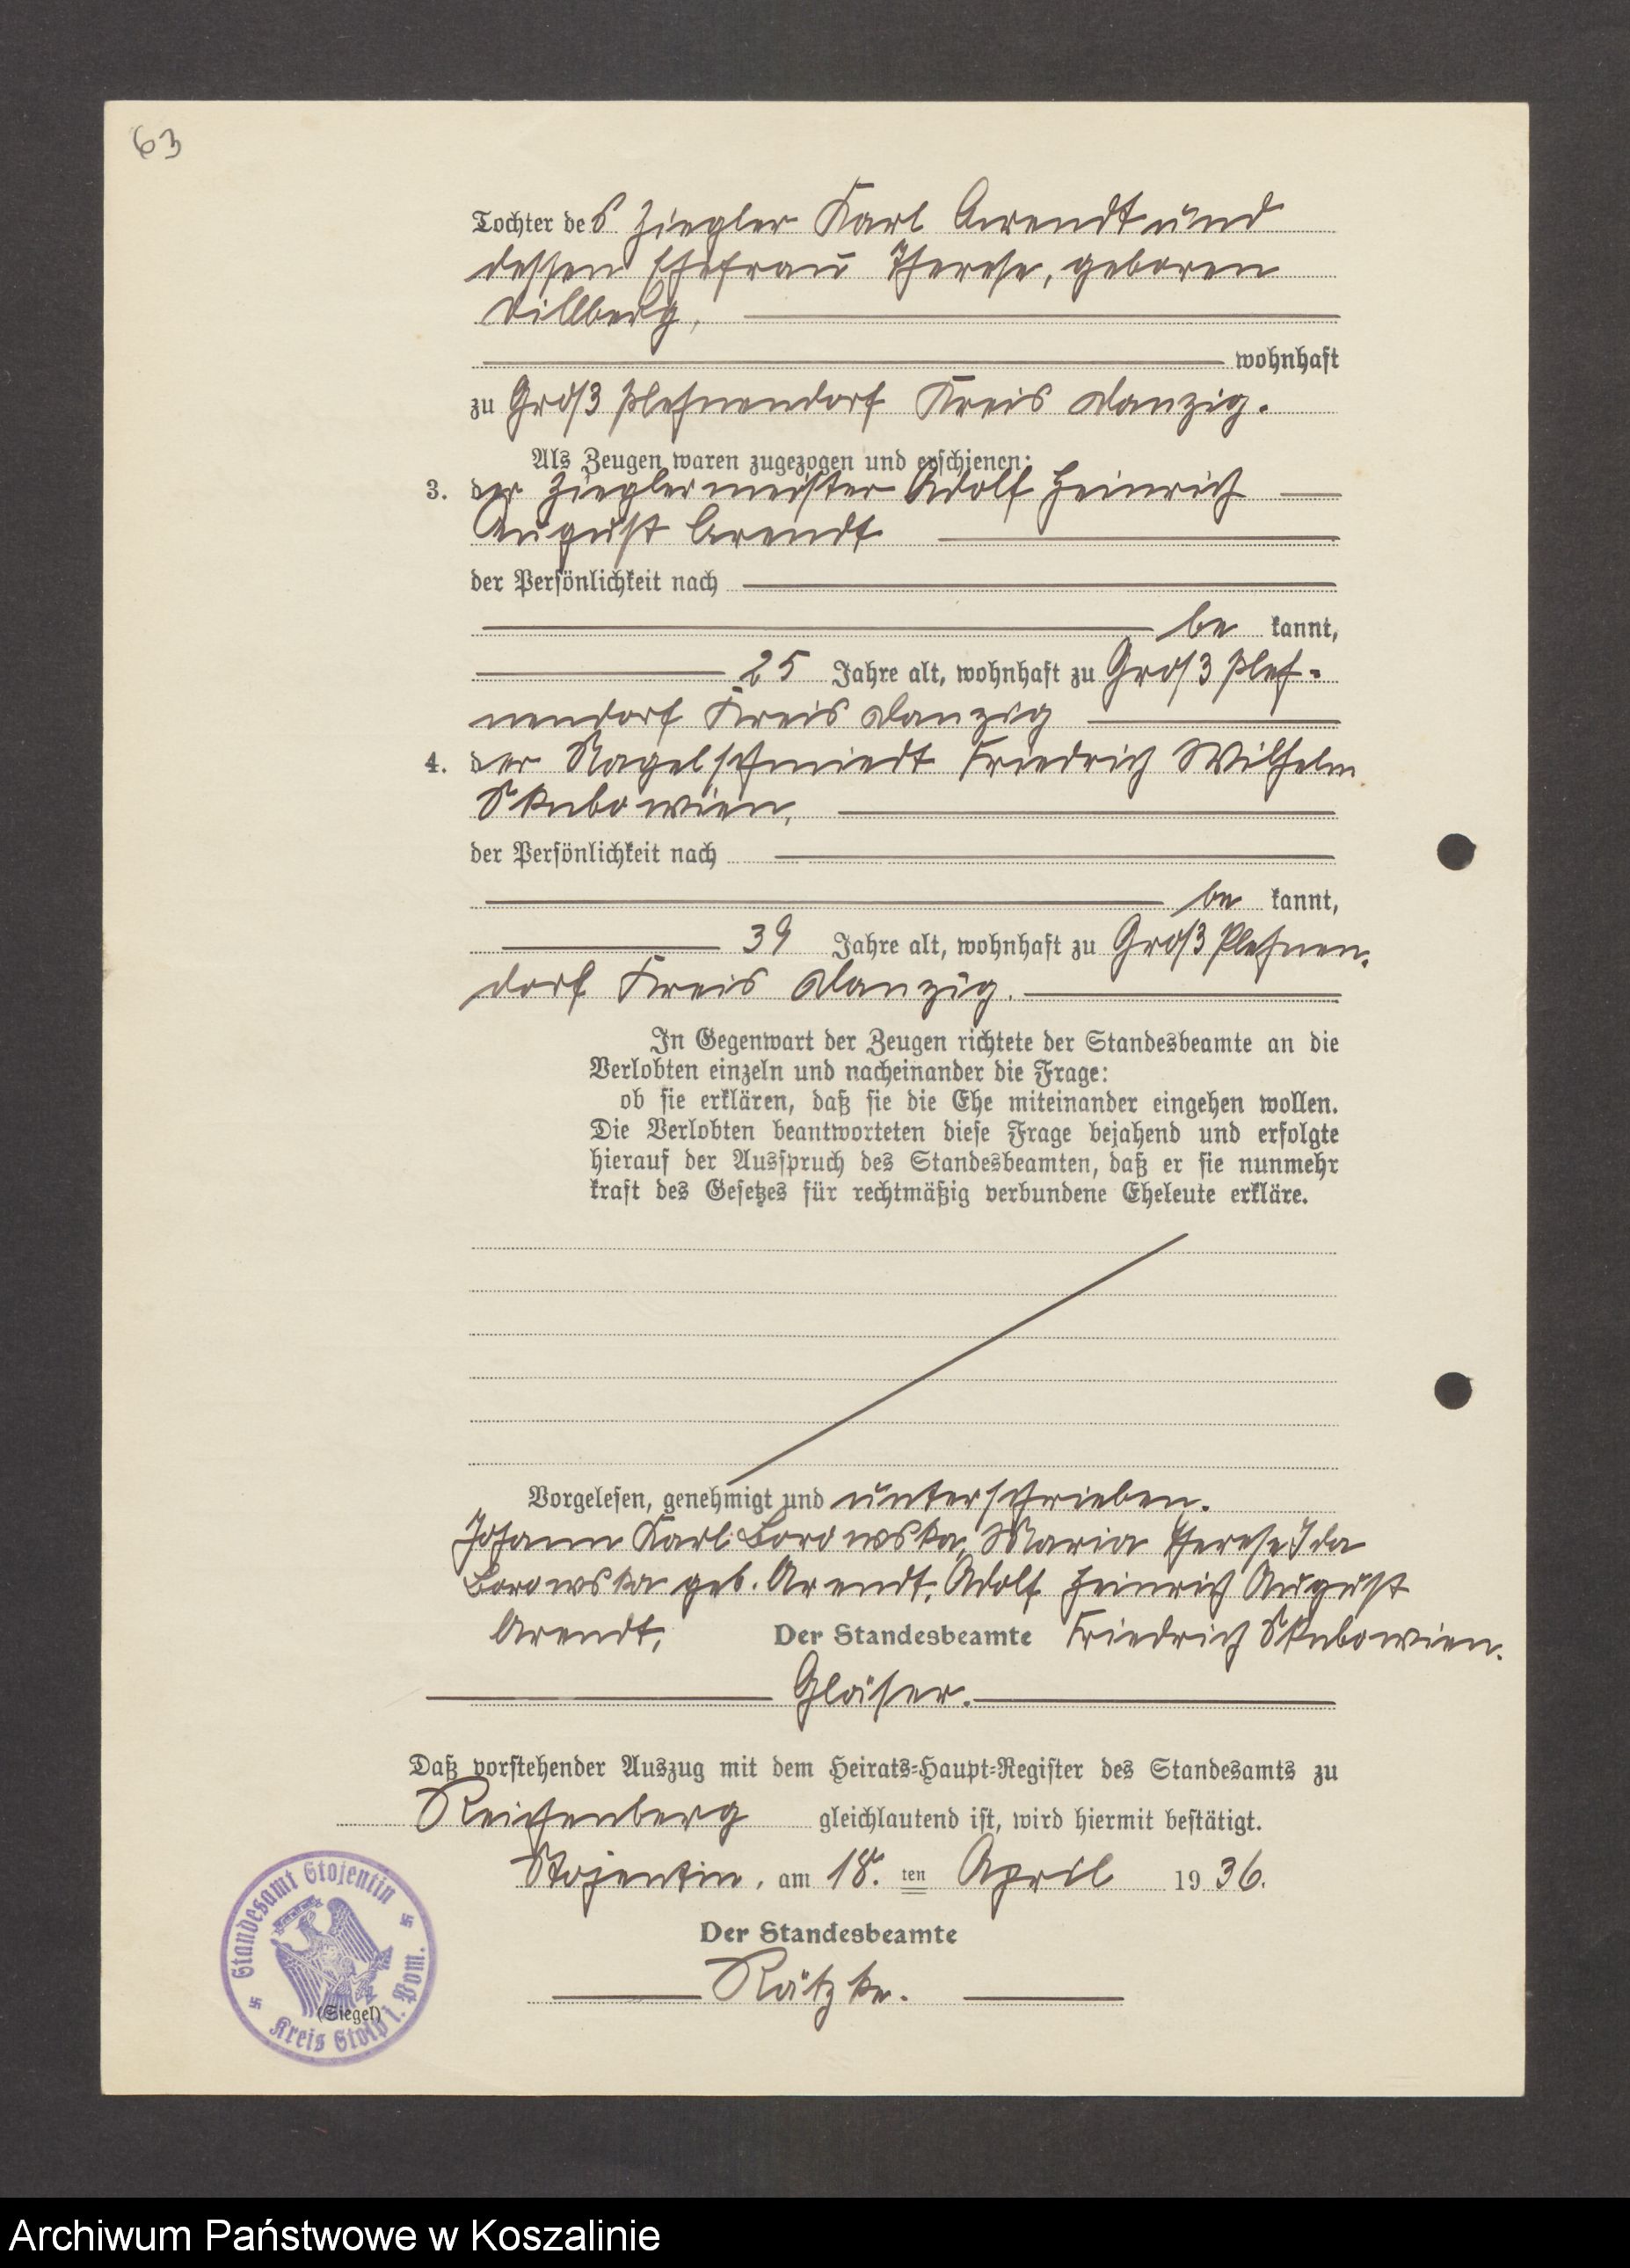 63
Tochter des Ziegler Karl Arendt und
dessen Ehefrau Therese, geboren
Dillberg,
wohnhaft
zu Groß Plehnendorf Kreis Danzig.
Als Zeugen waren zugezogen und erschienen:
3. der Zieglermeister Adolf Heinrich
August Arendt
der Persönlichkeit nach
be kannt,
25 Jahre alt, wohnhaft zu Groß Pleh-
nendorf Kreis Danzig
4. der Nagelschmiedt Friedrich Wilhelm
Skubowien,
der Persönlichkeit nach
be kannt,
39 Jahre alt, wohnhaft zu Groß Plehnen-
dorf Kreis Danzig.
In Gegenwart der Zeugen richtete der Standesbeamte an die
Verlobten einzeln und nacheinander die Frage:
ob sie erklären, daß sie die Ehe miteinander eingehen wollen.
Die Verlobten beantworteten diese Frage bejahend und erfolgte
hierauf der Ausspruch des Standesbeamten, daß er sie nunmehr
kraft des Gesetzes für rechtmäßig verbundene Eheleute erkläre.
Vorgelesen, genehmigt und unterschrieben.
Johann Karl Borowska, Maria Therese Ida
Borowska geb. Arendt, Adolf Heinrich August
Arendt, Der Standesbeamte Friedrich Skubowien.
Gläser.
Daß vorstehender Auszug mit dem Heirats-Haupt-Register des Standesamts zu
Reichenberg gleichlautend ist, wird hiermit bestätigt.
Stojentin, am 18. ten April 1936.
Der Standesbeamte
Rätzke.
(Siegel)
Standesamt Stojentin
Kreis Stolp i. Pom.
Archiwum Państwowe w Koszalinie